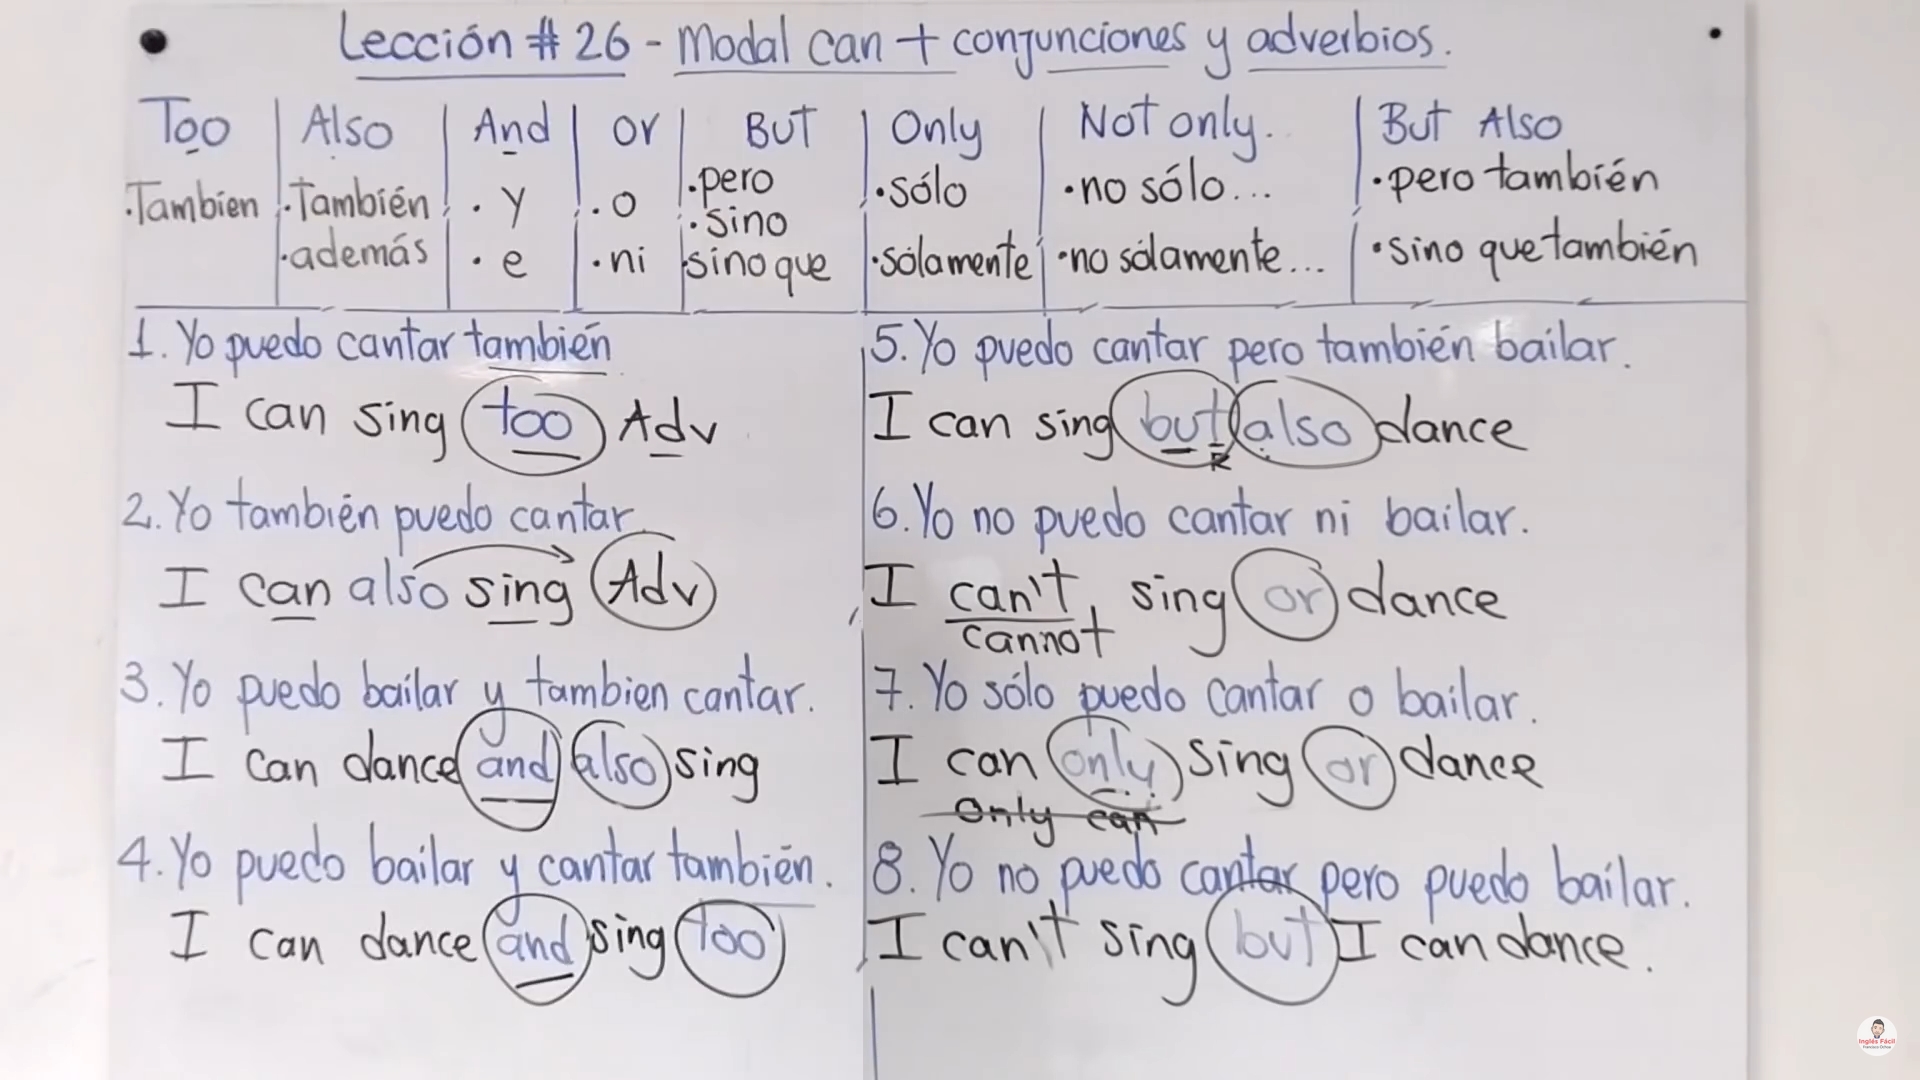 Lección # 26 - Modal can + conjunciones y adverbios.
Too | Also | And | or | But | Only | Not only. | But Also
·Tambien ·También · y · o ·pero ·sólo ·no sólo... ·pero también
·sino
·además · e ·ni sino que ·sólamente ·no sólamente... ·sino que también
1. Yo puedo cantar también
I can sing too Adv
2. Yo también puedo cantar
I can also sing Adv
3. Yo puedo bailar y tambien cantar.
I can dance and also sing
4. Yo puedo bailar y cantar también.
I can dance and sing too
5. Yo puedo cantar pero también bailar.
I can sing but also dance
R
6. Yo no puedo cantar ni bailar.
I can't sing or dance
cannot
7. Yo sólo puedo cantar o bailar.
I can only sing or dance
only can
8. Yo no puedo cantar pero puedo bailar.
I can't sing but I can dance.
Inglés Fácil
Francisco Ochoa